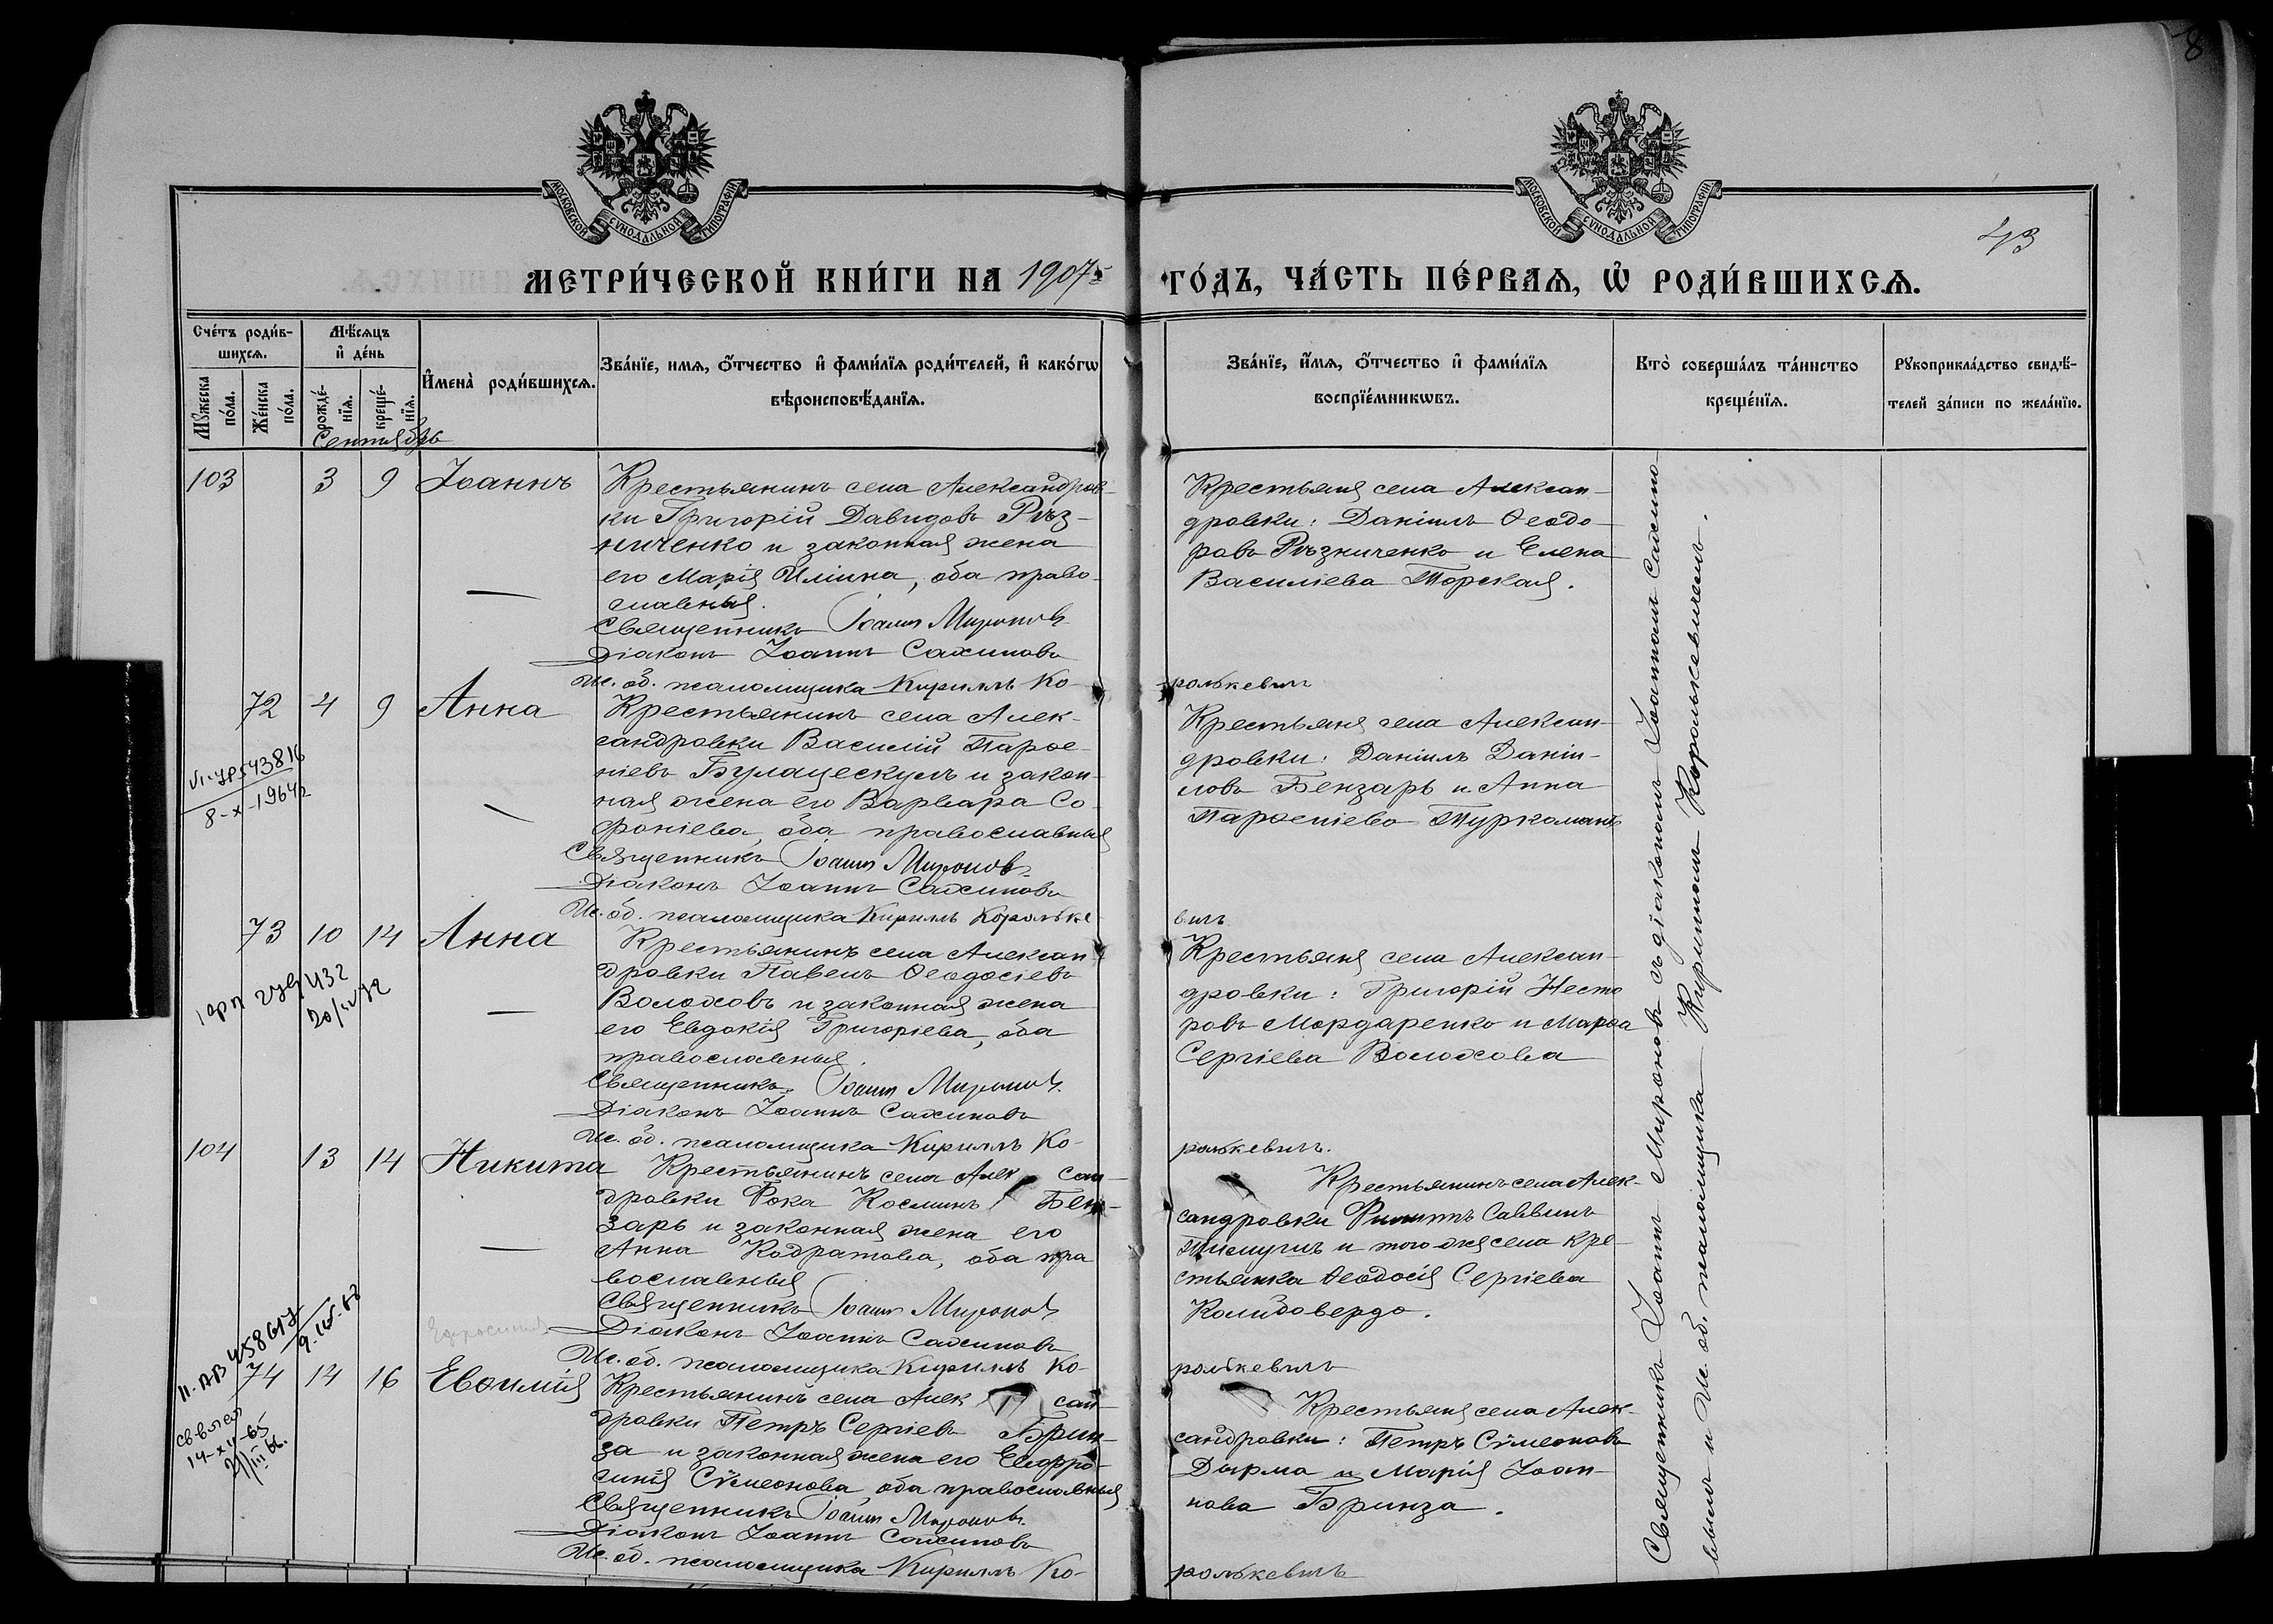 8
МОСКОВСКОЙ СѴНОДАЛЬНОЙ ТИПОГРАФІИ
МОСКОВСКОЙ СѴНОДАЛЬНОЙ ТИПОГРАФІИ
43
МЕТРИ́ЧЕСКОЙ КНИ́ГИ НА 1907й
ГО́ДЪ, ЧА́СТЬ ПЕ́РВАѦ, Ѡ҆ РОДИ́ВШИХСѦ.
Сче́тъ роди́в-
шихсѧ.
Мꙋ́жеска по́ла.
Же́нска по́ла.
Мѣ́сѧцъ
и҆ де́нь
рожде́-нїѧ.
креще́-нїѧ.
И҆мена̀ роди́вшихсѧ.
Зва́нїе, имѧ, ѻ҆́тчество и҆ фами́лїѧ роди́телей, и҆ како́гѡ
вѣроисповѣ́данїѧ.
Зва́нїе, и҆́мѧ, ѻ҆́тчество и҆ фами́лїѧ
воспрїе́мникѡвъ.
Кто̀ соверша́лъ та́инство
креще́нїѧ.
Рꙋкоприкла́дство свидѣ́-
телей за́писи по жела́нїю.
Сентябрь
103 3 9 Іоаннъ
Крестьянинъ села Александров-
ки Григорій Давидовъ Рѣз-
ниченко и законная жена
его Марія Иліина, оба право-
славныя.
Священникъ Іоаннъ Мироновъ
Діаконъ Іоаннъ Сахиновъ
Ис. об. псаломщика Кириллъ Ко-
Крестьяне села Алексан-
дровки: Даніилъ Ѳеодо-
ровъ Рѣзниченко и Елена
Василіева Торская.
ролькевичъ
72 4 9 Анна
8-х-1964г
Крестьянинъ села Алек-
сандровки Василій Парѳе-
ніевъ Булацескулъ и закон-
ная жена его Варвара Со-
фоніева, оба православныя
Священникъ Іоаннъ Мироновъ
Діаконъ Іоаннъ Сахиновъ
Ис. об. псаломщика Кириллъ Королькe-
Крестьяне села Алексан-
дровки: Даніилъ Даніи-
ловъ Бензарь и Анна
Парѳеніева Туркоманъ
вичъ
73 10 14 Анна
Крестьянинъ села Алексан-
дровки Павелъ Ѳеодосіевъ
Волоховъ и законная жена
его Евдокія Григоріева, оба
православныя.
Священникъ Іоаннъ Мироновъ.
Діаконъ Іоаннъ Сахиновъ
Ис. об. псаломщика Кириллъ Ко-
Крестьяне села Алексан-
дровки: Григорій Несто
ровъ Мордаренко и Марѳа
Сергіева Волохова
ролькевичъ.
104 13 14 Никита
Крестьянинъ села Алек сан-
дровки Фока Косминъ Бен-
зарь и законная жена его
Анна Кодратова, оба пра
вославныя
Священникъ Іоаннъ Мироновъ
Діаконъ Іоаннъ Сахиновъ
Ис. об. псаломщика Кириллъ Ко-
Крестьянинъ села Алек-
сандровки Филиппъ Саввинъ
и того же села кре-
стьянка Ѳеодосія Сергіева
ролькевичъ
II-АВ 458617
9.IV.68
74 14 16 Евѳимія
14-XII-65
Крестьянинъ села Алек сан-
дровки Петръ Сергіевъ Брин-
за и законная жена его Евфро-
синія Сѵмеонова, оба православныя
Священникъ Іоаннъ Мироновъ.
Діаконъ Іоаннъ Сахиновъ
Ис. об. псаломщика Кириллъ Ко-
Крестьяне села Алек-
сандровки: Петръ Сѵмеоновъ
Дырма и Марія Іоан-
нова Бринза.
ролькевичъ
Священникъ Іоаннъ Мироновъ съ діакономъ Іоанномъ Сахино-
вымъ и Ис. об. псаломщика Кирилломъ Королькевичемъ.